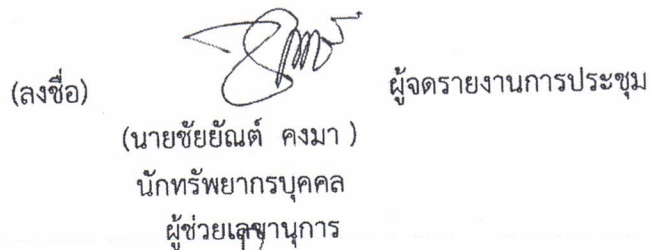 (ลงชื่อ) ผู้จดรายงานการประชุม
(นายชัยยัณต์ คงมา )
นักทรัพยากรบุคคล
ผู้ช่วยเลขานุการ